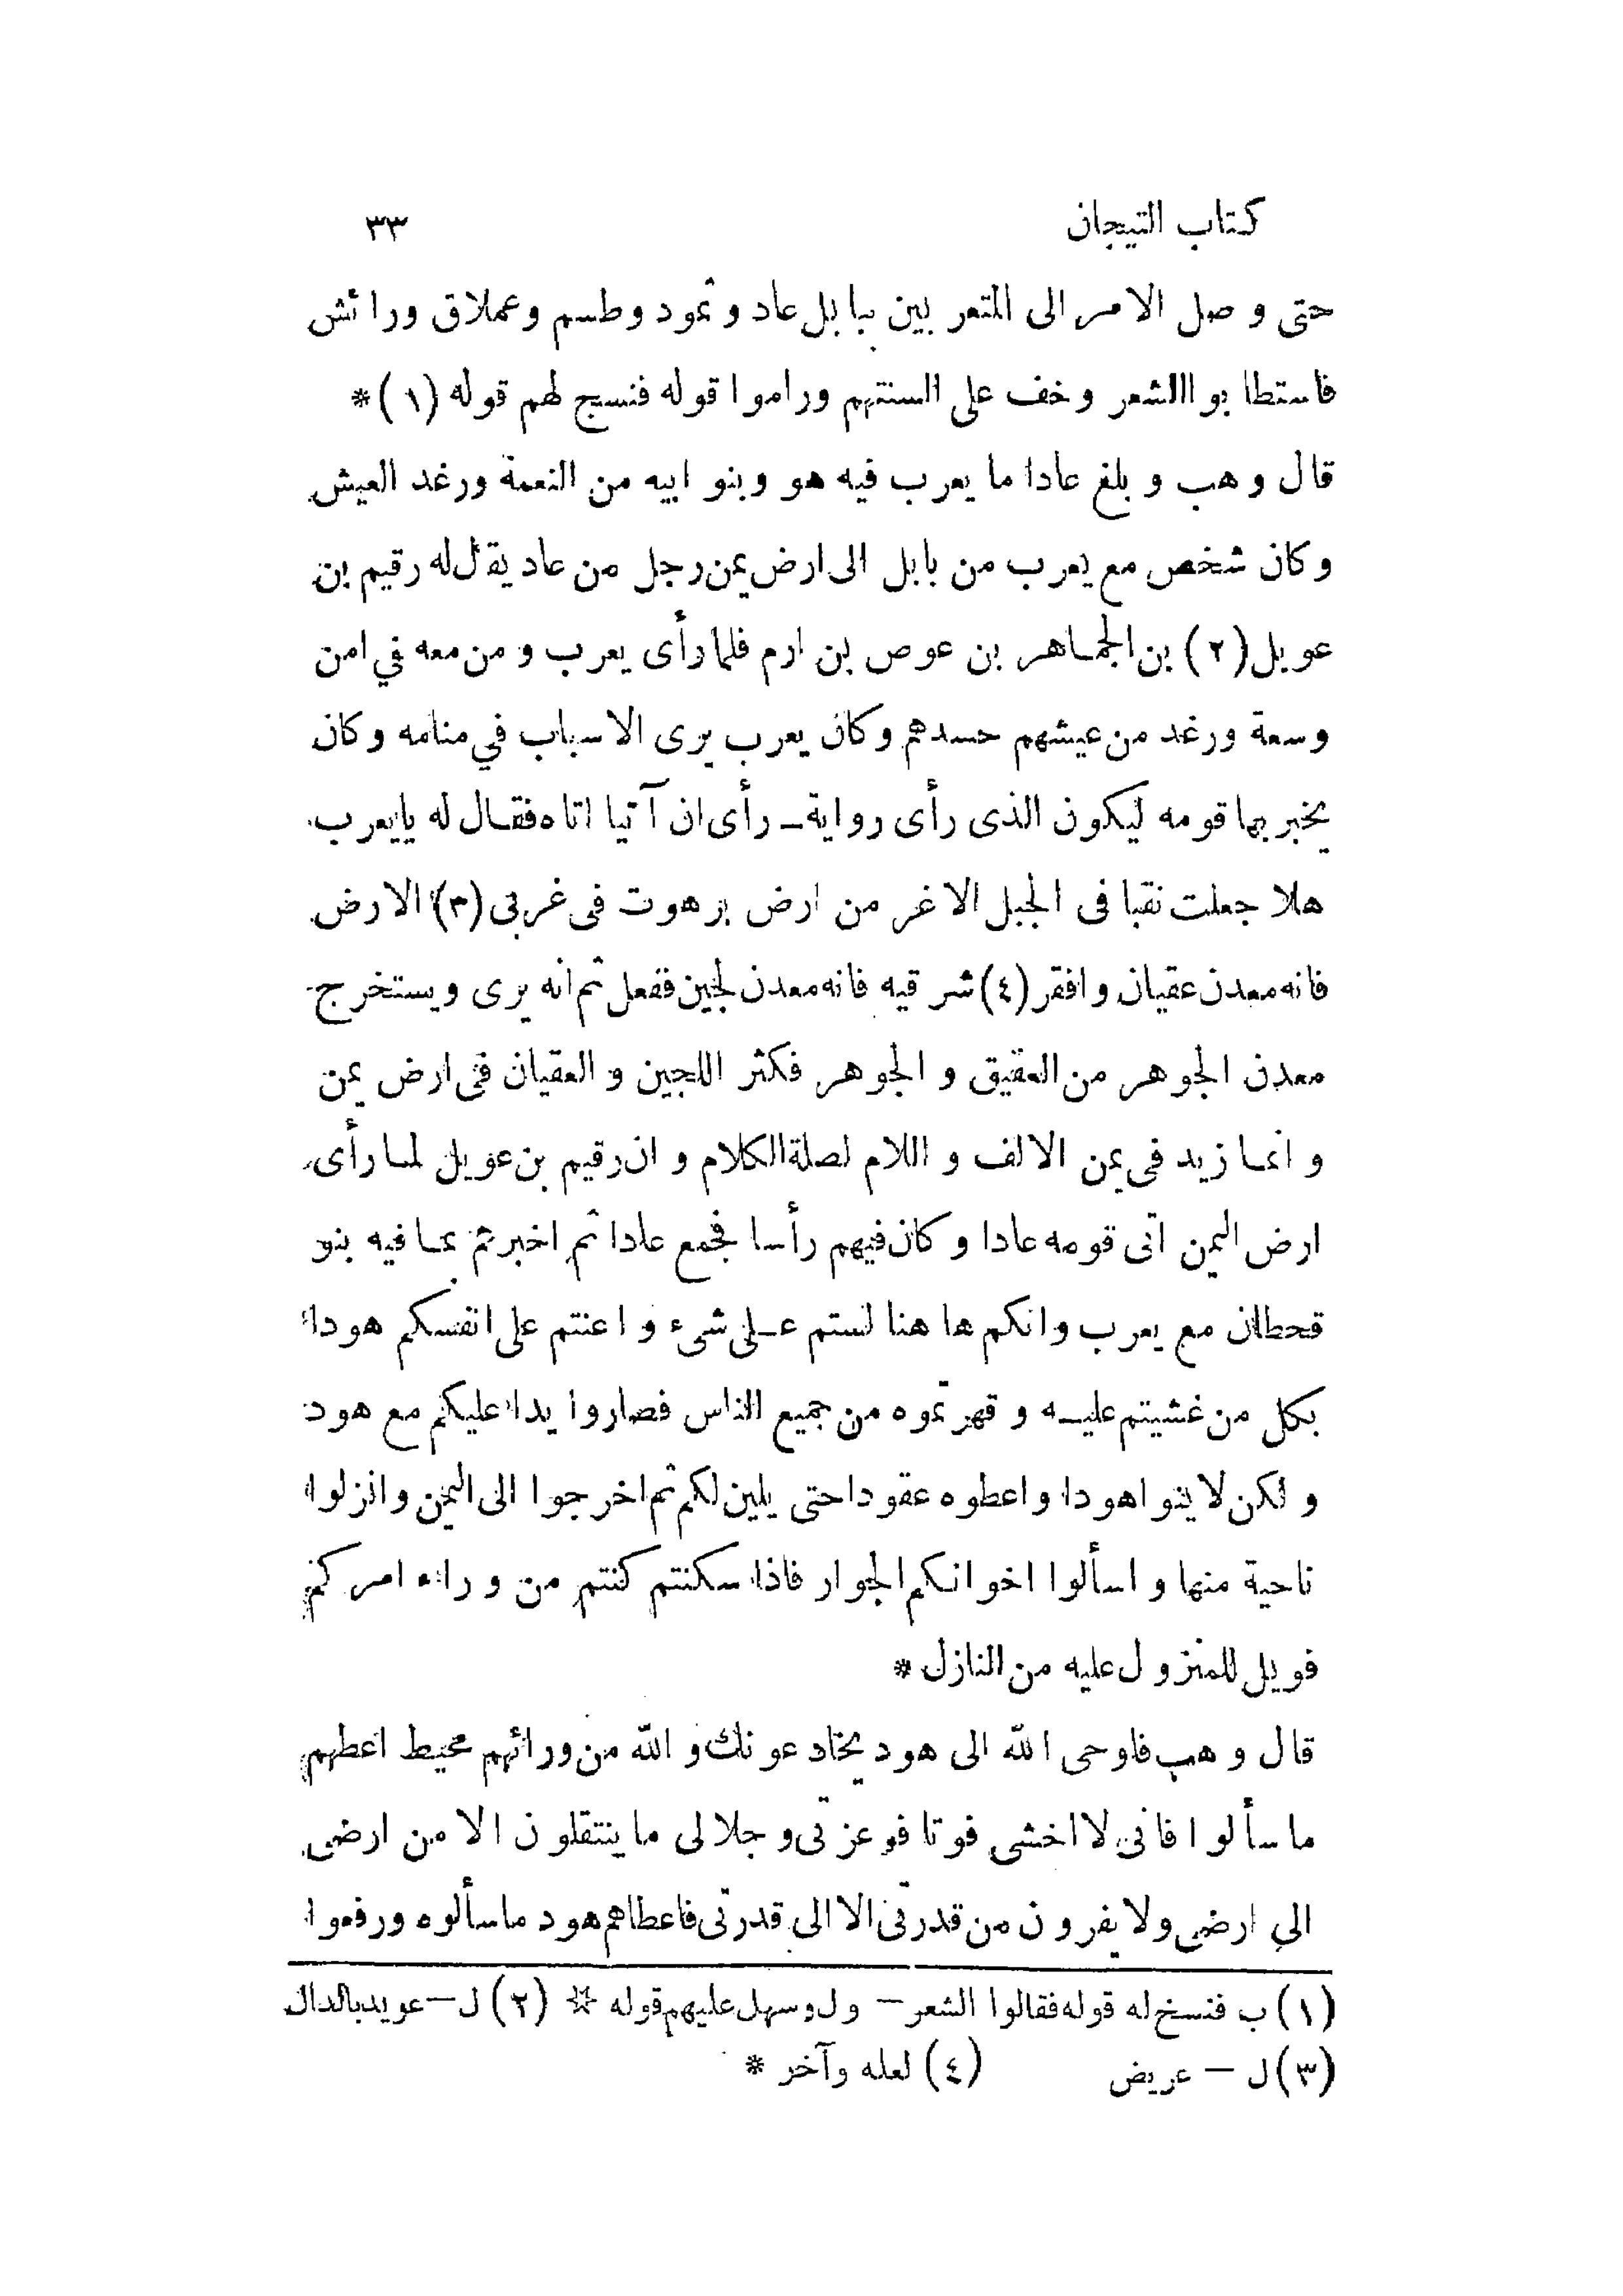 كتاب التيجان ٣٣
حتى وصل الامر الى المتعربين ببابل عاد وثمود وطسم وعملاق ورائش
فاستطابوا الشعر وخف على السنتهم وراموا قوله فنسج لهم قوله (١) *
قال وهب وبلغ عادا ما يعرب فيه هو وبنو ابيه من النعمة ورغد العيش
وكان شخص مع يعرب من بابل الى ارض يمن رجل من عاد يقال له رقيم بن
عويل (٢) بن الجماهر بن عوص بن ارم فلما رأى يعرب ومن معه في امن
وسعة ورغد من عيشهم حسدهم وكان يعرب يرى الاسباب في منامه وكان
يخبر بها قومه ليكون الذى رأى رواية ــ رأى ان آتيا اتاه فقال له يايعرب
هلا جعلت نقبا فى الجبل الاغر من ارض برهوت فى غربى (٣) الارض
فانه معدن عقيان وافقر (٤) شرقيه فانه معدن لجين ففعل ثم انه يرى ويستخرج
معدن الجوهر من العقيق و الجوهر فكثر اللجين و العقيان فى ارض يمن
و انما زيد فى يمن الالف و اللام لصلة الكلام و ان رقيم بن عويل لما رأى
ارض اليمن اتى قومه عادا وكان فيهم رأسا فجمع عادا ثم اخبرهم بما فيه بنو
قحطان مع يعرب وانكم ها هنا لستم عـلى شىء و اعنتم على انفسكم هودا
بكل من غشيتم عليـه و قهرتموه من جميع الناس فصاروا يدا عليكم مع هود
و لكن لاينوا هودا واعطوه عقودا حتى يلين لكم ثم اخرجوا الى اليمن وانزلوا
ناحية منها و اسألوا اخوانكم الجوار فاذا سكنتم كنتم من وراء امركم
فويل للمنزول عليه من النازل *
قال وهب فاوحى الله الى هود يخاد عونك و الله من ورائهم محيط اعطهم
ما سألوا فانى لا اخشى فوتا فوعزتى وجلالى ما ينتقلون الا من ارضى
الى ارضى ولا يفرون من قدرتى الا الى قدرتى فاعطاهم هود ما سألوه ورفعوا
(١) ب فنسخ له قوله فقالوا الشعر — ول وسهل عليهم قوله * (٢) ل — عويد بالدال
(٣) ل — عريض (٤) لعله وآخر *